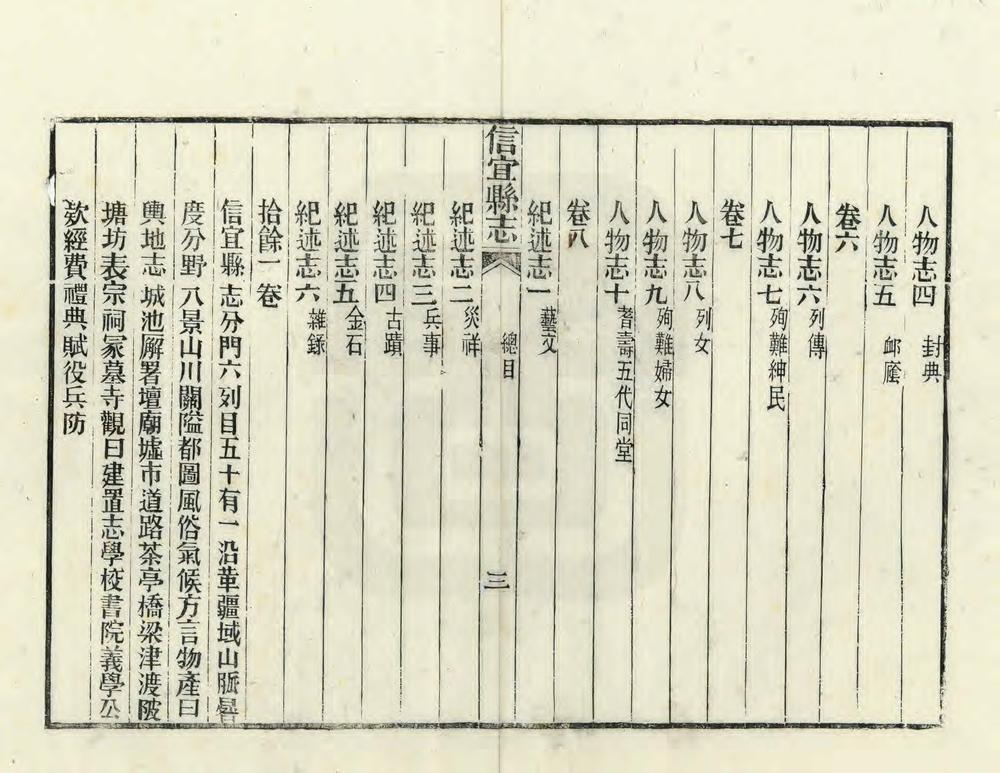 人物志四 封典
人物志五 䘏廕
卷六
人物志六 列傳
人物志七 殉難紳民
卷七
人物志八 列女
人物志九 殉難婦女
人物志十 耆壽五代同堂
卷八
紀述志一 藝文
信宜縣志 總目 三
紀述志二 災祥
紀述志三 兵事
紀述志四 古蹟
紀述志五 金石
紀述志六 雜錄
拾餘一卷
信宜縣志分門六列目五十有一沿革疆域山脈晷
度分野八景山川關隘都圖風俗氣候方言物產曰
輿地志城池廨署壇廟墟市道路茶亭橋梁津渡陂
塘坊表宗祠冢墓寺觀曰建置志學校書院義學公
欵經費禮典賦役兵防